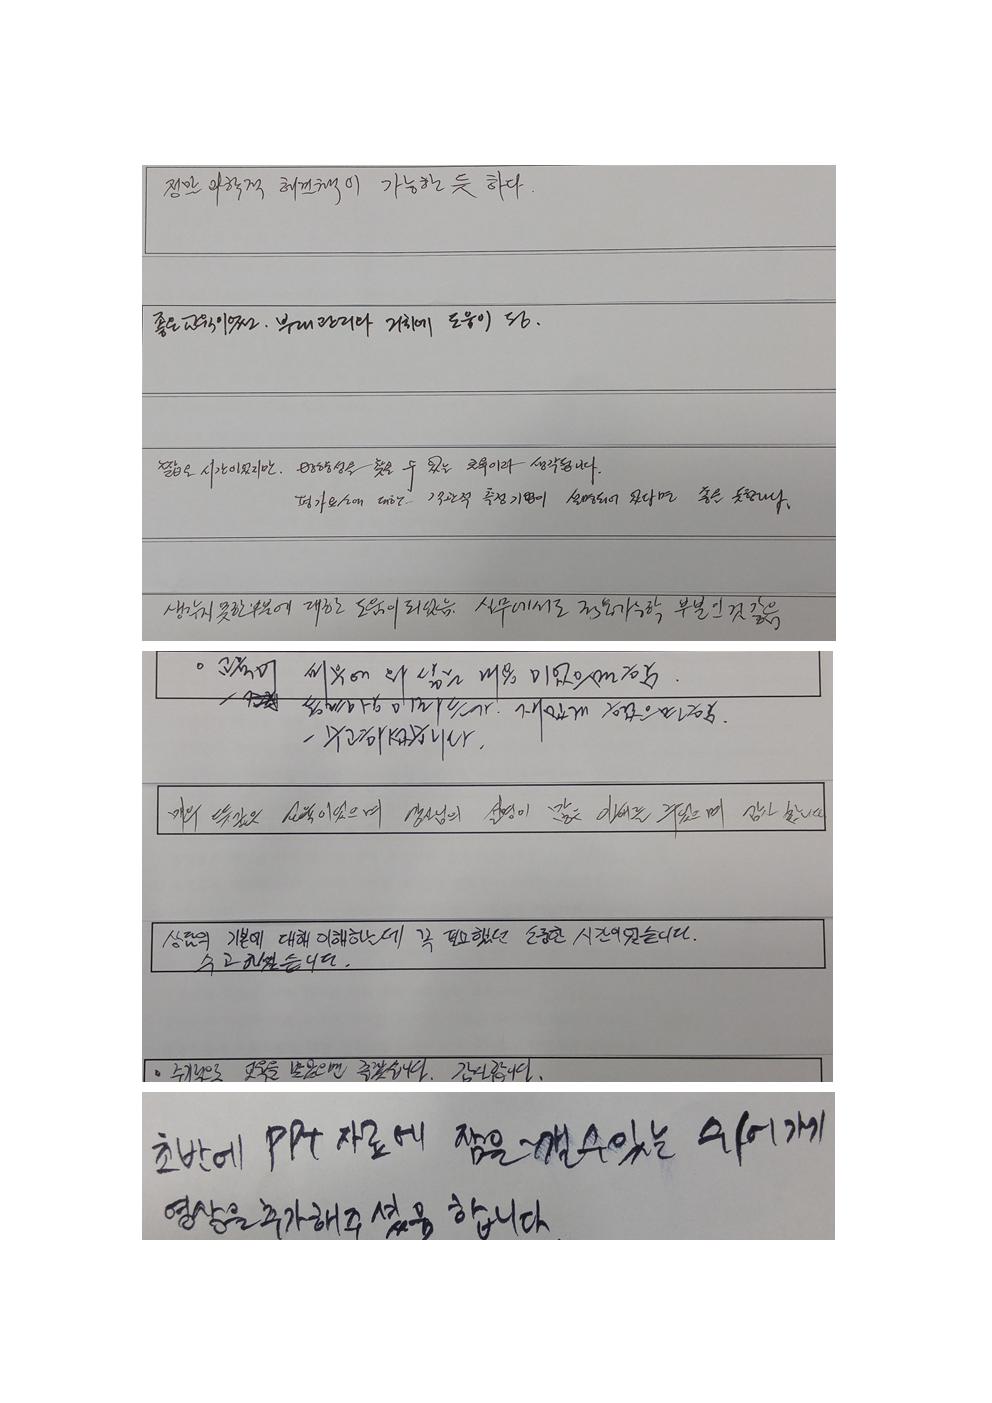 정말 과학적 해결책이 가능한 듯 하다.
좋은 교육이었고. 부대관리와 지휘에 도움이 됨.
짧은 시간이었지만. 방향성을 찾을 수 있는 교육이라 생각됩니다.
평가요소에 대한 객관적 측정기법이 설명되어 졌다면 좋을 듯합니다.
생각지 못한 부분에 대한 도움이 되었음. 실무에서도 적용가능한 부분인 것 같음
• 교육이
수고하셨습니다.
매우 뜻깊은 교육이었으며 강사님의 설명이 깊은 이해를 주었으며 감사합니다
상담의 기본에 대해 이해하는데 꼭 필요했던 소중한 시간이었습니다.
수고하셨습니다.
• 주기적으로 교육을 받았으면 좋겠습니다. 감사합니다.
초반에 PPT 자료에 잠을 깰 수 있는 쉬어가기
영상을 추가해주셨음 합니다.